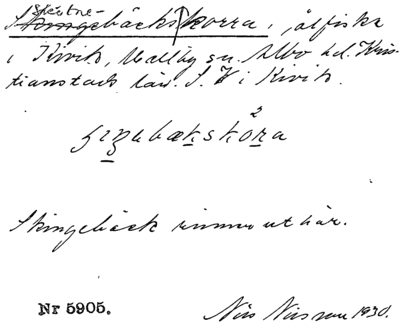 Skingebäckskorra, ålfiske
i Kivik, Mellby sn. Albo hd. Kris-
tianstads län. S. V. i Kivik.
Skingebäck rinner ut här.
Nr 5905.
Nils Nilsson 1930.